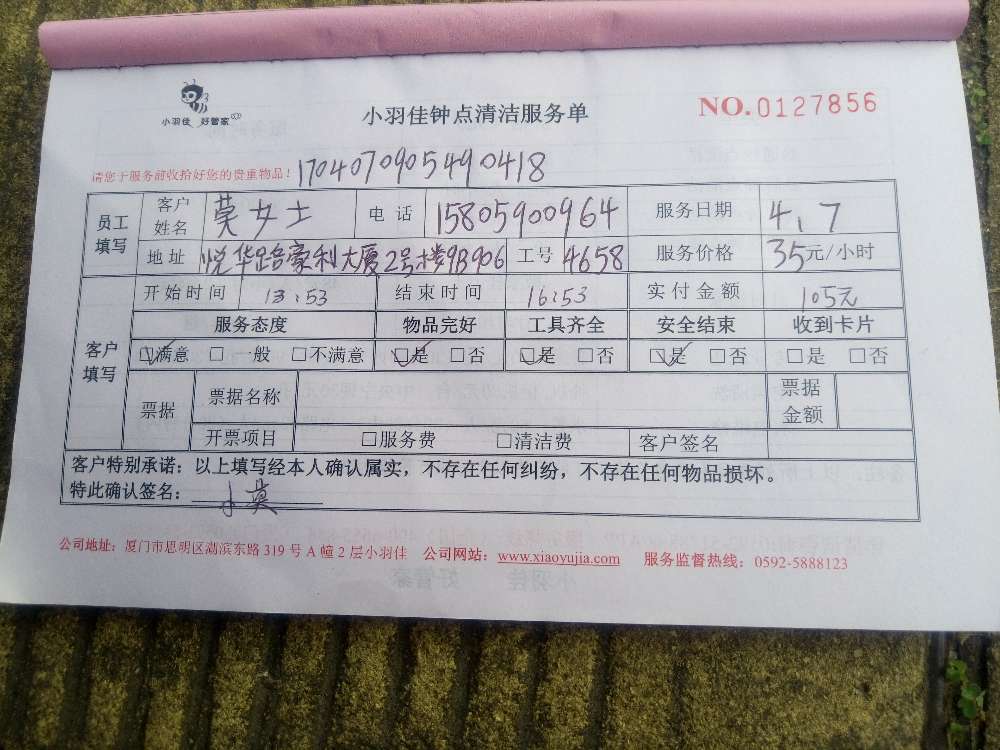 小羽佳 好管家
小羽佳钟点清洁服务单
NO.0127856
请您于服务前收拾好您的贵重物品！ 1704070905490418
员工填写 客户姓名 莫女士 电话 15805900964 服务日期 4.7
地址 悦华路豪利大厦2号楼9B906 工号 4658 服务价格 35元/小时
客户填写 开始时间 13:53 结束时间 16:53 实付金额 105元
服务态度 物品完好 工具齐全 安全结束 收到卡片
☑满意 □一般 □不满意 ☑是 □否 ☑是 □否 ☑是 □否 □是 □否
票据 票据名称 票据金额
开票项目 □服务费 □清洁费 客户签名
客户特别承诺：以上填写经本人确认属实，不存在任何纠纷，不存在任何物品损坏。
特此确认签名： 小莫
公司地址：厦门市思明区湖滨东路 319 号 A 幢 2 层小羽佳 公司网站：www.xiaoyujia.com 服务监督热线：0592-5888123